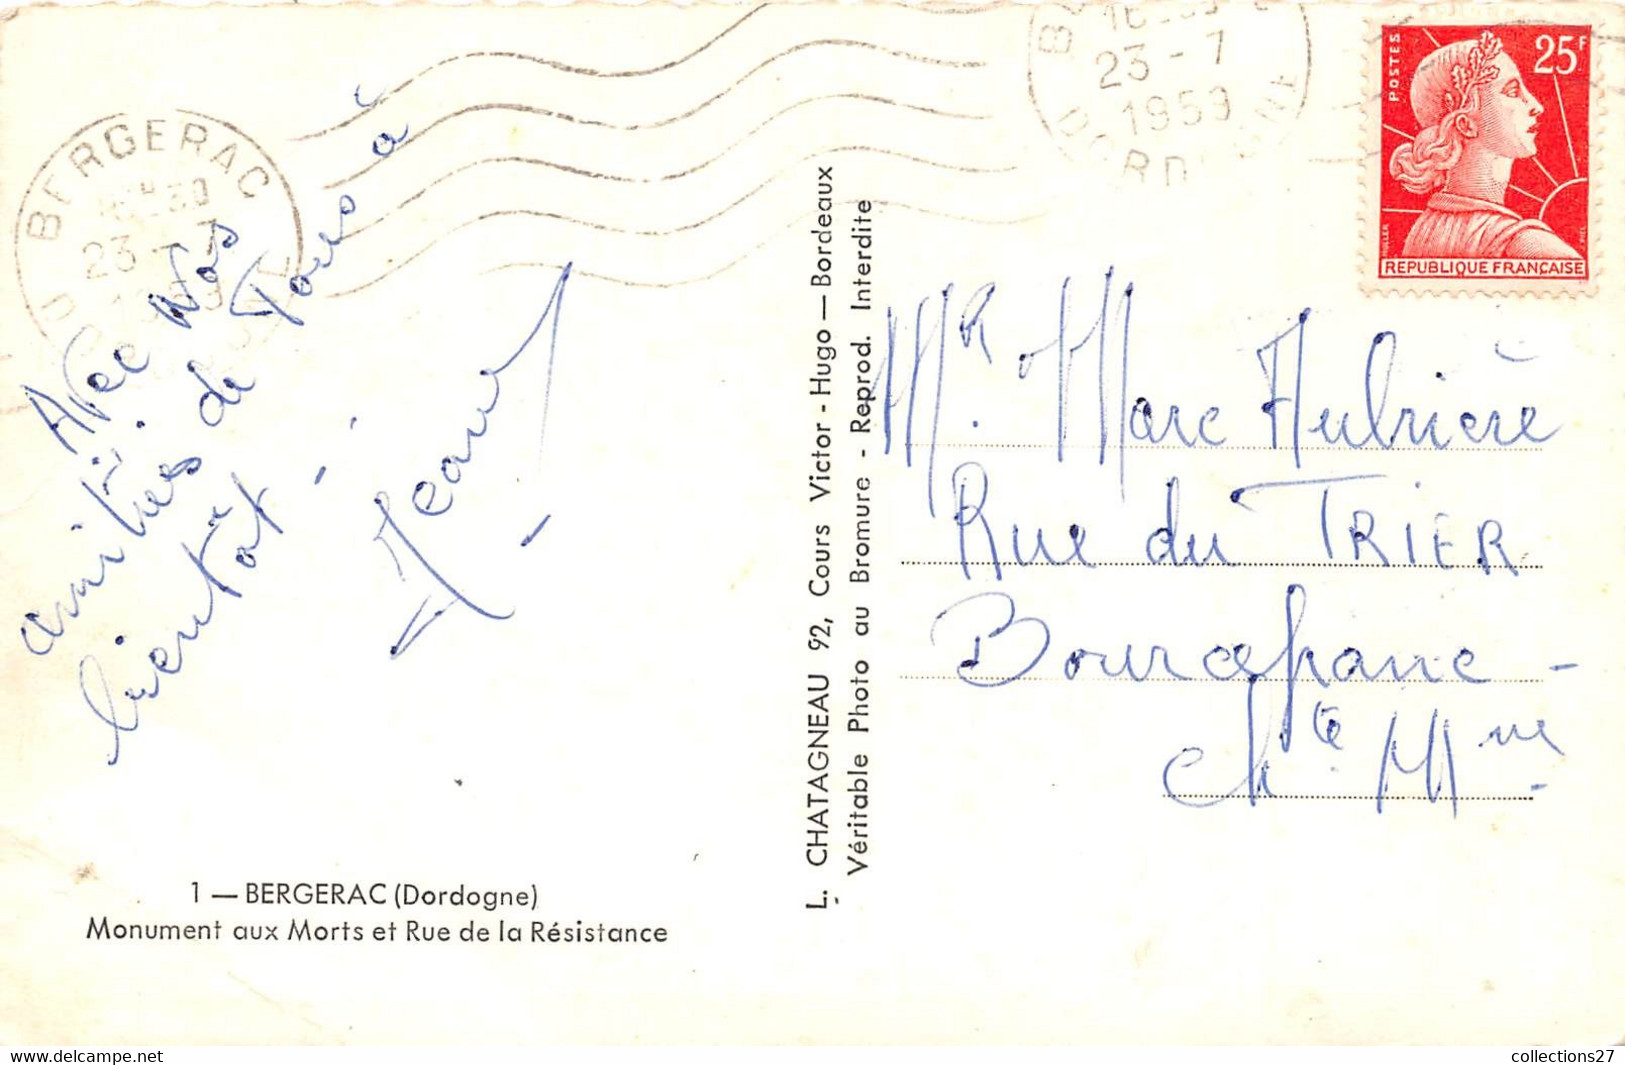 BERGERAC
23 - 7
Avec nos
amitiés de Tous à
bientôt -
Jean
1 — BERGERAC (Dordogne)
Monument aux Morts et Rue de la Résistance
L. CHATAGNEAU 92, Cours Victor - Hugo — Bordeaux
Véritable Photo au Bromure - Reprod. Interdite
23 - 7
1959
POSTES
25F
REPUBLIQUE FRANÇAISE
MR. Marc Aubrière
Rue du TRIER
Bourcefranc -
Chte Mme
collections27